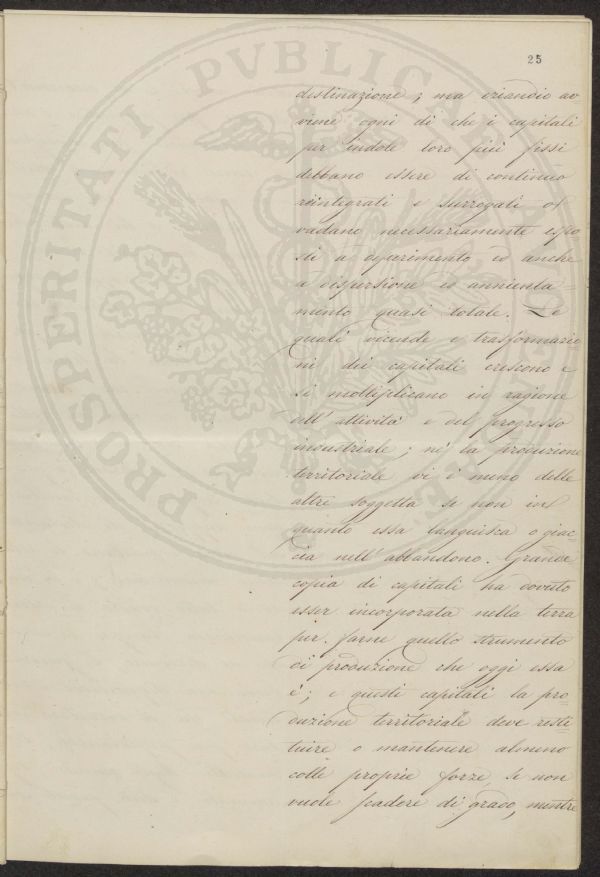 25
destinazione; ma eziandio av
viene ogni dì che i capitali
per indole loro più fissi
debbano essere di continuo
reintegrati e surrogati o
vadano necessariamente espo
sti a deperimento ed anche
a dispersione ed annienta-
mento quasi totale. Le
quali vicende e trasformazio
ni dei capitali crescono e
si moltiplicano in ragione
dell'attività e del progresso
industriale; nè la produzione
territoriale vi è meno delle
altre soggetta se non in
quanto essa languisca o giac
cia nell'abbandono. Grande
copia di capitali ha dovuto
esser incorporata nella terra
per farne quello strumento
di produzione che oggi essa
è; e questi capitali la pro
duzione territoriale deve resti
tuire o mantenere almeno
colle proprie forze se non
vuole scadere di grado, mentre
PROSPERITATI PVBLICAE